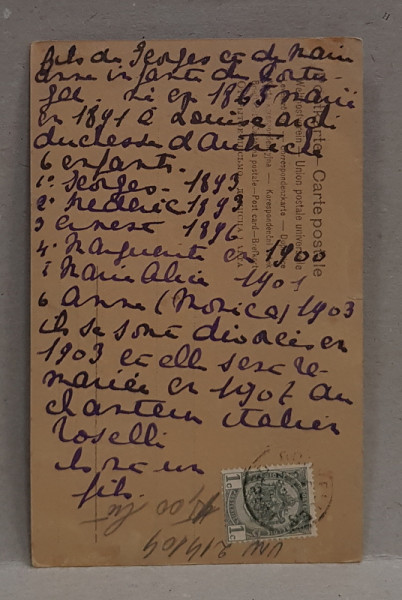 fils de Georges et de Marie
Anne infante de Portu-
gal. né en 1865 marié
en 1891 à Louise archi
duchesse d'Autriche
6 enfants.
1º Georges - 1893
2º Frederic 1893
3 Ernest 1896
4º Marguerite en 1900
5 Marie Alice 1901
6 Anna (Monica) 1903
ils se sont divorcés en
1903 et elle s'est re-
mariée en 1907 au
chanteur italien
Toselli
ils ont un
fils.
Carte postale
Weltpostverein - Union postale universelle
Korrespondenzkarte
Post card
1c 1c